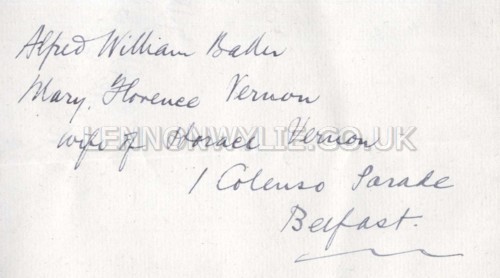 Alfred William Baller
Mary, Florence Vernon
LENNONWYLIE.CO.UK
wife of Horace Vernon
1 Colenso Parade
Belfast.